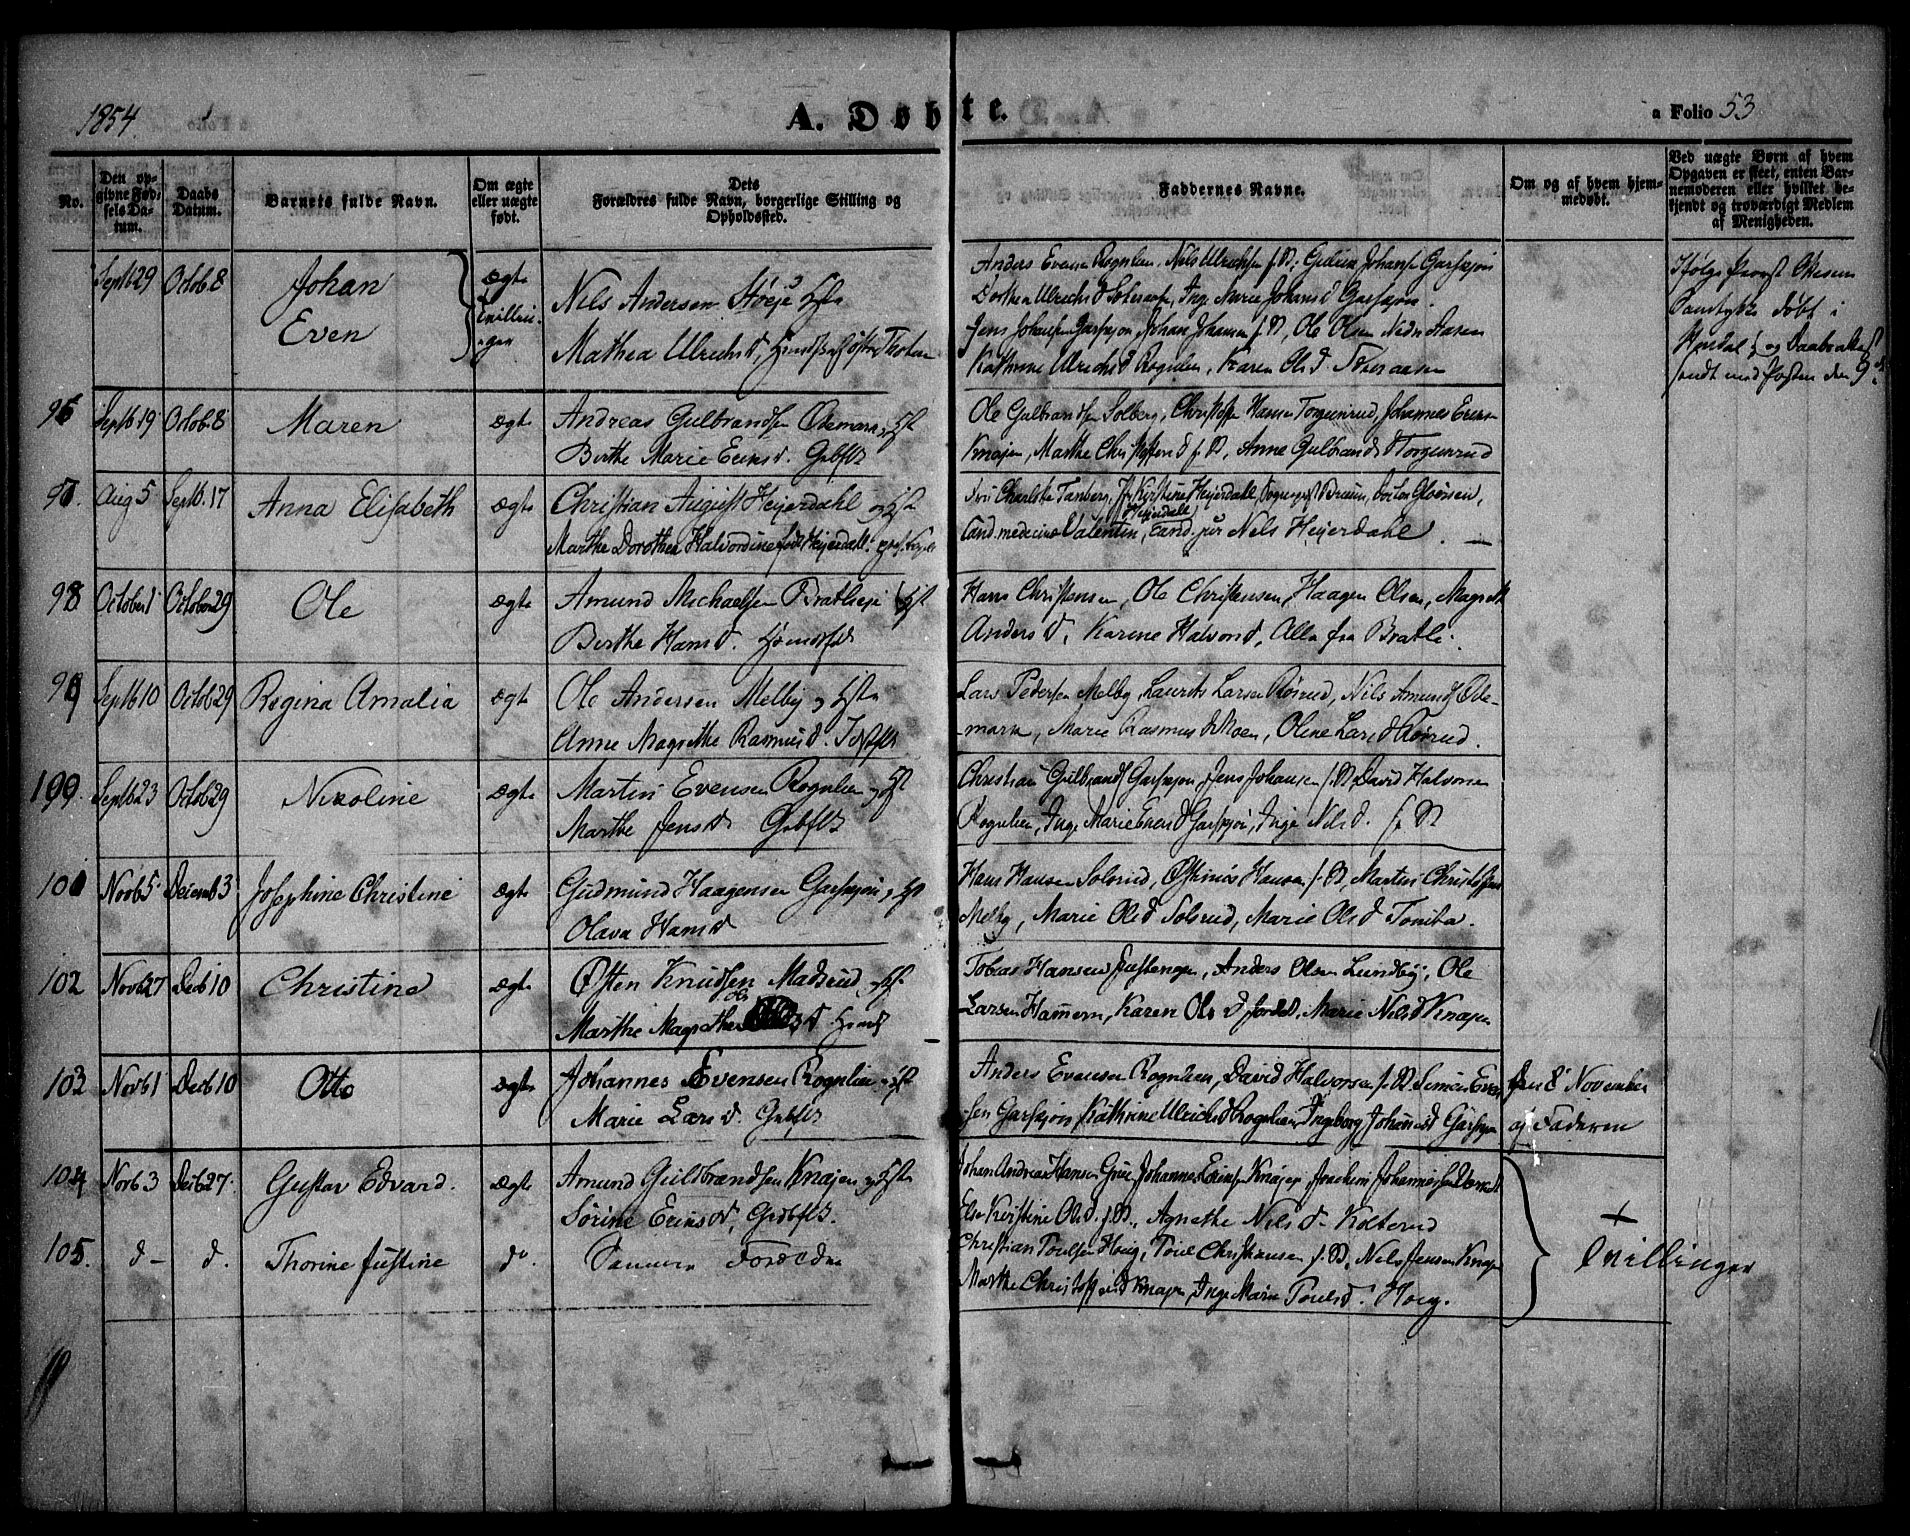 1854.
A. Døbte.
a Folio 53
No.
Den op-
givne Fød-
sels Da-
tum.
Daabs
Datum.
Barnets fulde Navn.
Om ægte
eller uægte
født.
Dets
Forældres fulde Navn, borgerlige Stilling og
Opholdssted.
Faddernes Navne.
Om og af hvem hjem-
medøbt.
Ved uægte Børn af hvem
Opgaven er skeet, enten Bar-
nemoderen eller hvilket be-
kjendt og troværdigt Medlem
af Menigheden.
Septb 29 Octob. 8 Johan
Even
ægte
Nils Andersen
Mathea Ulrichsd.
Anders Evensen Rognlien, Nils Ulrichsen f. St; Johans Garsjøn
Dorthea Ulrichsd Inge Marie Johansd Garsjøn.
Jens Johansen Garsjøn Johan Johansen f. St, Ole Olsen Nedre Aasen
Kathrine Ulrichsd Rognlien, Karen Olsd.
Ifølge Provst
Samtykke døbt i
og Daabsattest
sendt med Posten den 9
96 Septb 19 Octob. 8 Maren ægte
Andreas Gulbrandsen Ødemark
Berthe Marie Eriksd. Gdbflk
Ole Gulbrandsen Solberg, Christoffer Hansen Torgunrud, Johannes Eriksen
Knajen, Marthe Christoffersd f. St, Anne Gulbrandsd Torgunrud
97. Aug 5 Septb. 17 Anna Elisabeth ægte
Christian August Heyerdahl
Marthe Dorothea Halvordine født Heyerdahl.
Charlotte Tanberg, Kirstine Heyerdahl,
Heyerdahl
Cand. medicinæ Valentin, Cand. jur Nils Heyerdahl.
98 October 1 October 29 Ole ægte
Amund Michaelsen
Berthe Hansd.
Hans Christensen, Ole Christensen, Haagen Olsen, Magrethe
Andersd, Karine Halvorsd, Alle fra Bratli.
99 Septb 10 Octob 29 Regina Amalia ægte
Ole Andersen Melby
Anne Magrethe Rasmusd.
Lars Pedersen Melby, Laurits Larsen Rørud, Nils Amunds Øde-
mark, Marie Rasmusd Moen, Oline Larsd Rørud.
100 Septb 23 Octob 29 Nicoline ægte
Martin Evensen Rognlien
Marthe Jensd Gdbflk
Christian Gulbrands Garsjøn, Jens Johansen f. St, David Halvorsen
Rognlien, Inge Marie Evensd Garsjøn, Inge Nilsd. f. St
101 Novb 5 Decemb 3 Josephine Christine ægte
Gudmund Haagensen Garsjøn
Olava Hansd
Hans Hansen Solsrud, Hansen f. St, Martin Christoffersen
Melby, Marie Olsd Solsrud, Marie Olsd
102 Novb 27 Decb 10 Christine ægte
Østen Knudsen Madsrud
Ols
Marthe Magrethe d
Tobias Hansen Anders Olsen Lundby, Ole
Larsen Hamern, Karen Olsd Marie Nilsd Knajen
103 Novb 1 Decb 10 Otto ægte
Johannes Evensen Rognlien
Marie Larsd. Gdbflk
Anders Evensen Rognlien, David Halvorsen f. St. Simen Even-
sen Garsjøn Kathrine Ulrichsd Rognlien, Ingeborg Johansd Garsjøn
den 8 November
af Faderen
104 Novb 3 Decb 27. Gustav Edvard. ægte
Amund Guldbrandsen Knajen
Sørine Eriksd, Gdbflk.
Johan Andreas Hansen Johannes Eriksen Knajen, Joachim
Else Kirstine Olsd. f. St., Agnethe Nilsd Kolterud
105. d - d. Thorine Justine do.
Samme Forældre
Christian Poulsen Høig, Poul Christiansen f. St, Nils Jensen Knajen
Marthe Christoffersd Knajen, Inge Marie Poulsd. Høig.
+
Tvillinger